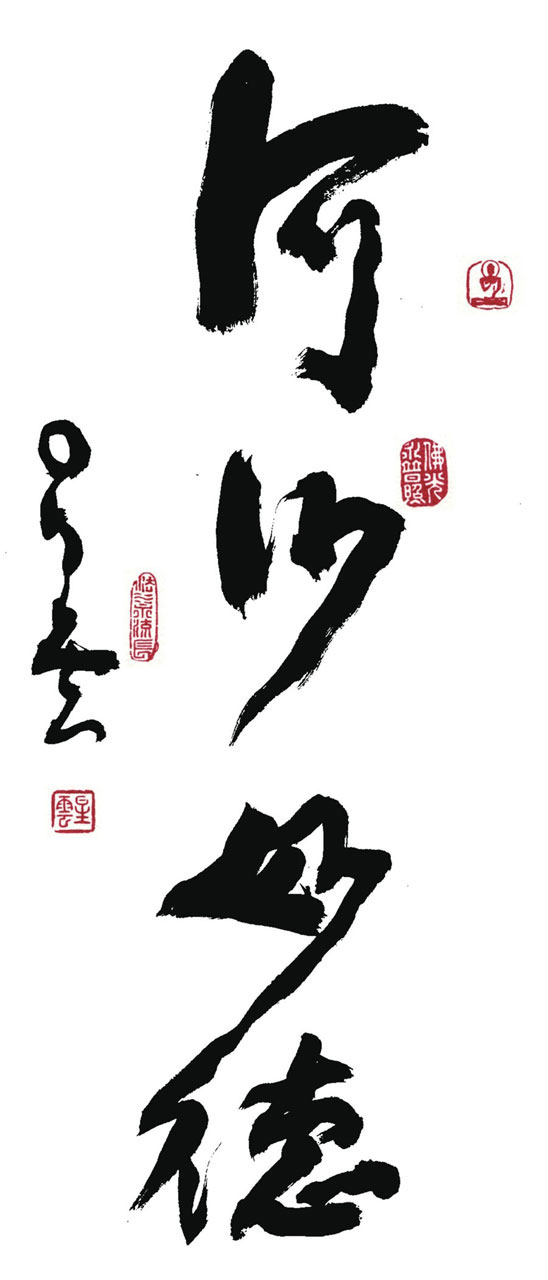 河沙妙德
星雲
佛光
普照
法水流長
星雲